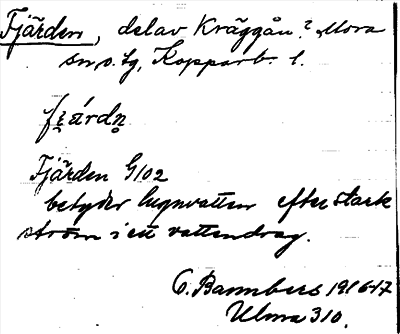 Fjärden, del av Kräggån? Mora
sn o. tg, Kopparb. l.
Fjärden G102
betyder lugnvatten efter stark
ström i ett vattendrag.
O. Bannbers 1916-17
Ulma 310.